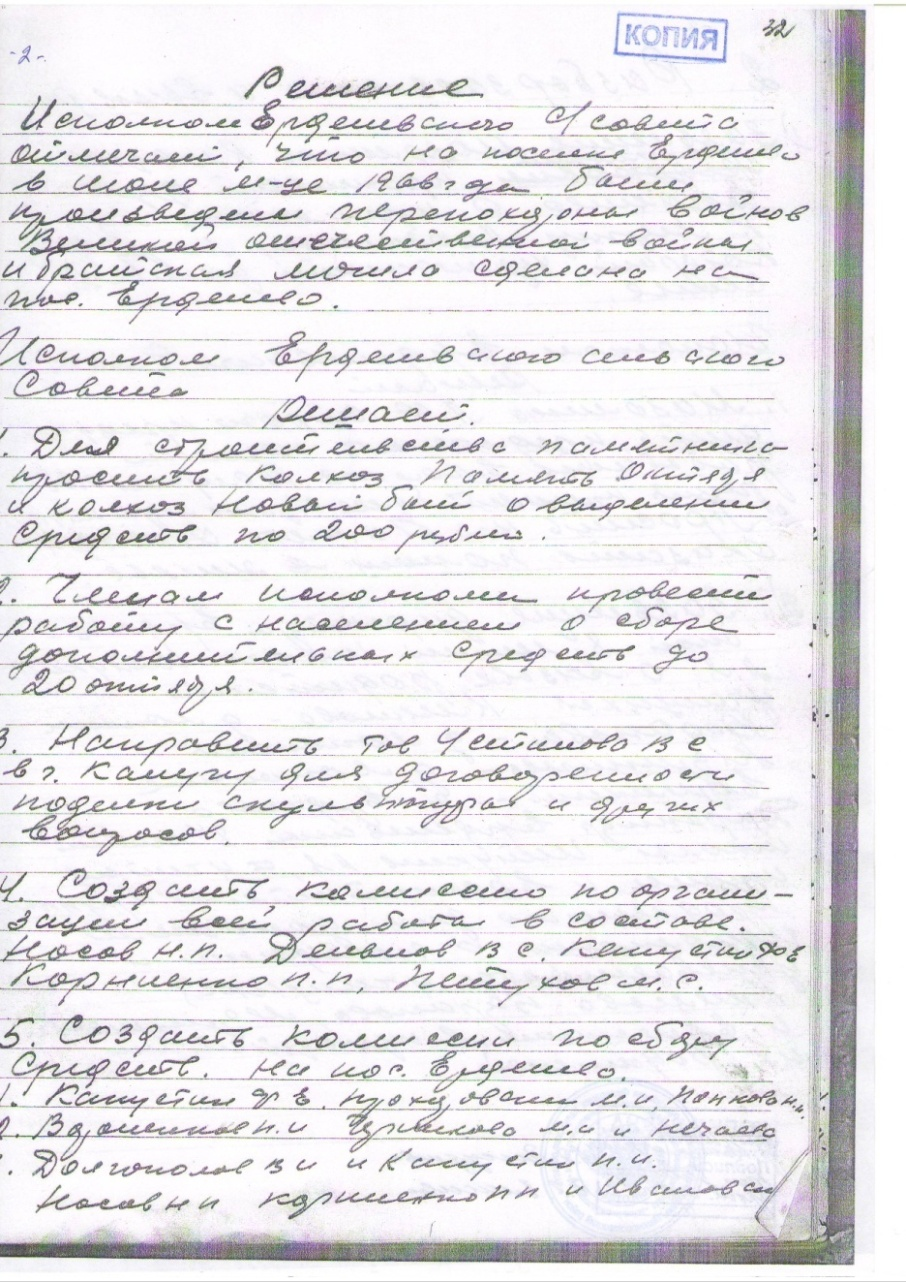 КОПИЯ
32
-2-
Решение
Исполком Ердевского С/совета
отмечает, что на поселке Ердево
в июле м-це 1966 года были
произведены перепохороны войнов
Великой отечественной войны
и братская могила сделана на
пос. Ердево.
Исполком Ердевского сельского
Совета
решает.
1. Для строительства памятника
просить колхоз Память Октября
и колхоз Новый быт о выделении
средств по 200 рублей.
2. Членам исполкома провести
работу с населением о сборе
дополнительных средств до
20 октября.
3. Направить тов Устинова В С
в г. Калугу для договоренности
поделки скульптуры и других
вопросов.
4. Создать комиссию по органи-
зации всей работы в составе.
Носов Н.П. В С. Капустин Ф Е
Корниенко П.П, Петухов М.С.
5. Создать комиссии по сбору
средств. на пос. Ердево.
1. Капустин Ф Е. М.И,
2. Н.И М.И и Нечаева
Долгополов В И и Капустин П.И.
Носов Н П Корниенко П П и